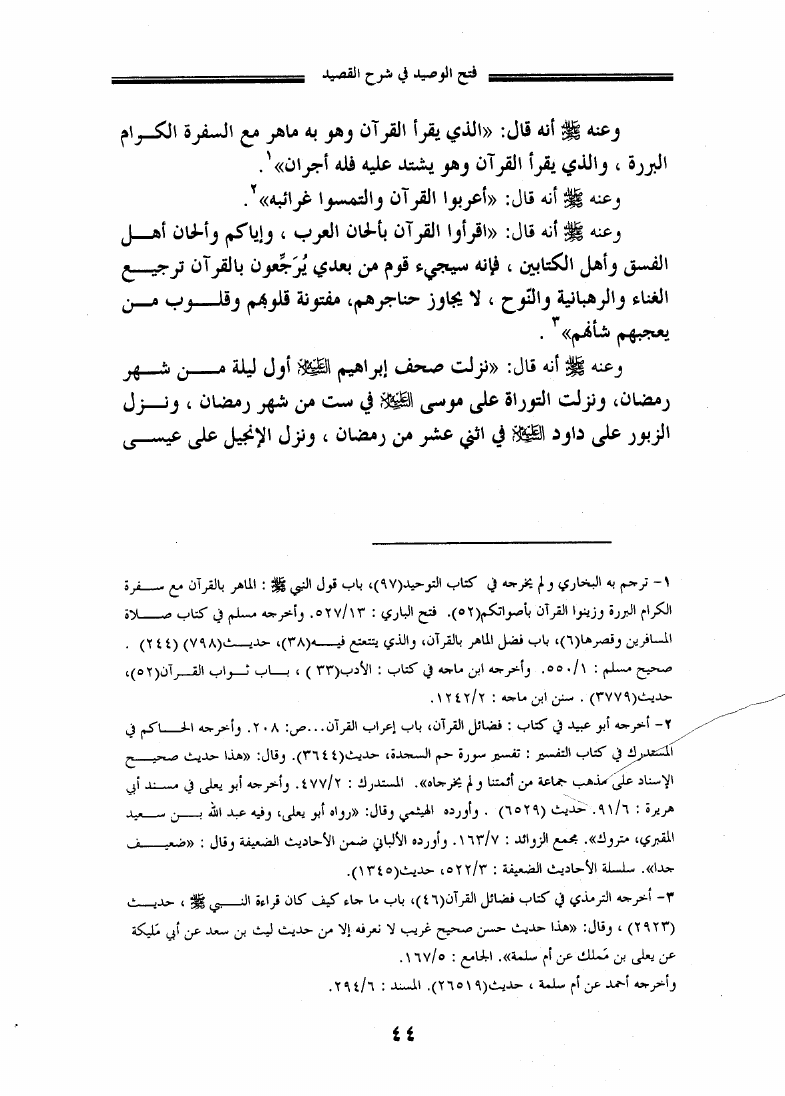 فتح الوصيد في شرح القصيد
وعنه ﷺ أنه قال: «الذي يقرأ القرآن وهو به ماهر مع السفرة الكرام
البررة ، والذي يقرأ القرآن وهو يشتد عليه فله أجران»١.
وعنه ﷺ أنه قال: «أعربوا القرآن والتمسوا غرائبه»٢.
وعنه ﷺ أنه قال: «اقرأوا القرآن بألحان العرب ، وإياكم وألحان أهل
الفسق وأهل الكتابين ، فإنه سيجيء قوم من بعدي يُرَجِّعون بالقرآن ترجيع
الغناء والرهبانية والنَّوح ، لا يجاوز حناجرهم، مفتونة قلوبهم وقلوب من
يعجبهم شأنهم»٣ .
وعنه ﷺ أنه قال: «نزلت صحف إبراهيم العليه السلام أول ليلة من شهر
رمضان، ونزلت التوراة على موسى عليه السلام في ست من شهر رمضان ، ونزل
الزبور على داود عليه السلام في اثني عشر من رمضان ، ونزل الإنجيل على عيسى
١- ترجم به البخاري و لم يخرجه في كتاب التوحيد(٩٧)، باب قول النبي ﷺ : الماهر بالقرآن مع سفرة
الكرام البررة وزينوا القرآن بأصواتكم(٥٢). فتح الباري : ٥٢٧/١٣. وأخرجه مسلم في كتاب صلاة
المسافرين وقصرها(٦)، باب فضل الماهر بالقرآن، والذي يتتعتع فيه(٣٨)، حديث(٧٩٨) (٢٤٤) .
صحيح مسلم : ٥٥٠/١. وأخرجه ابن ماجه في كتاب : الأدب(٣٣ ) ، باب ثواب القرآن(٥٢)،
حديث(٣٧٧٩) . سنن ابن ماجه : ١٢٤٢/٢.
٢- أخرجه أبو عبيد في كتاب : فضائل القرآن، باب إعراب القرآن...ص: ٢٠٨. وأخرجه الحاكم في
المستدرك في كتاب التفسير : تفسير سورة حم السجدة، حديث(٣٦٤٤). وقال: «هذا حديث صحيح
الإسناد على مذهب جماعة من أئمتنا و لم يخرجاه». المستدرك : ٤٧٧/٢. وأخرجه أبو يعلى في مسند أبي
هريرة : ٩١/٦. حديث (٦٥٢٩) . وأورده الهيثمي وقال: «رواه أبو يعلى، وفيه عبد الله بن سعيد
المقبري، متروك». مجمع الزوائد : ١٦٣/٧. وأورده الألباني ضمن الأحاديث الضعيفة وقال : «ضعيف
جدا». سلسلة الأحاديث الضعيفة : ٥٢٢/٣، حديث(١٣٤٥).
٣- أخرجه الترمذي في كتاب فضائل القرآن(٤٦)، باب ما جاء كيف كان قراءة النبي ﷺ ، حديث
(٢٩٢٣) ، وقال: «هذا حديث حسن صحيح غريب لا نعرفه إلا من حديث ليث بن سعد عن أبي مُليكة
عن يعلى بن مَملك عن أم سلمة». الجامع : ١٦٧/٥.
وأخرجه أحمد عن أم سلمة ، حديث(٢٦٥١٩). المسند : ٢٩٤/٦.
٤٤